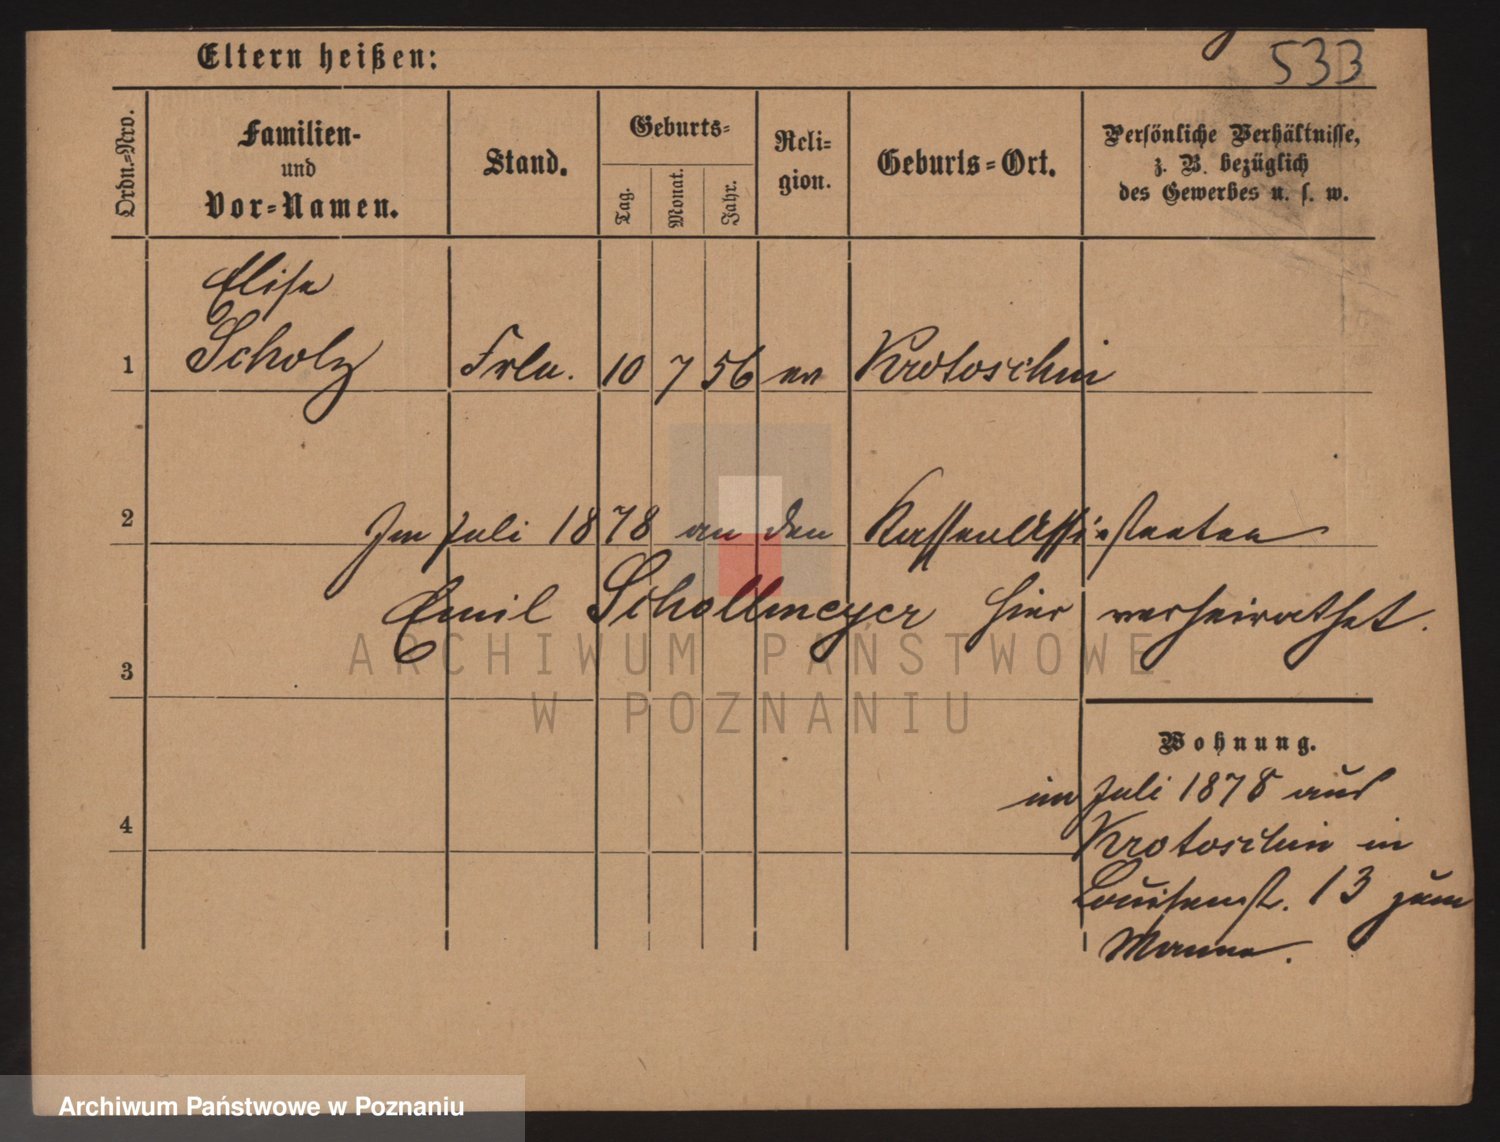 533
Eltern heißen:
Ordn.-Nro.
Familien-
und
Vor-Namen.
Stand.
Geburts-
Tag.
Monat.
Jahr.
Reli-
gion.
Geburts-Ort.
Persönliche Verhältnisse,
z. B. bezüglich
des Gewerbes u. s. w.
Elise
1 Scholz Frln. 10 7 56 ev Krotoschin
2 Im Juli 1878 an den Kassen Assistenten
Emil Schollmeyer hier verheirathet.
3
ARCHIWUM PAŃSTWOWE
W POZNANIU
Wohnung.
im Juli 1878 aus
4 Krotoschin in
Louisenst. 13 zum
Manne.
Archiwum Państwowe w Poznaniu